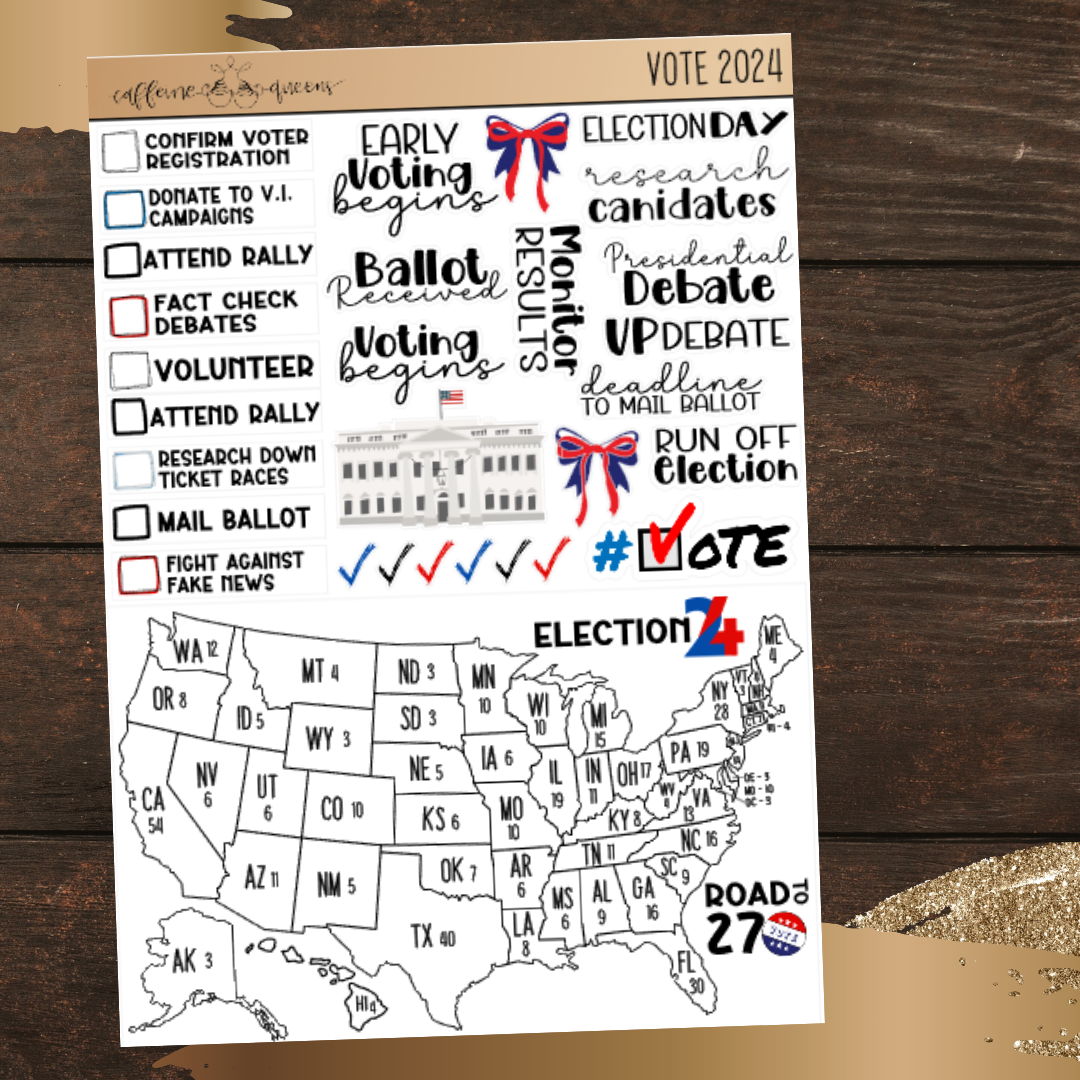 caffeine queens
VOTE 2024
CONFIRM VOTER
REGISTRATION
DONATE TO V.I.
CAMPAIGNS
ATTEND RALLY
FACT CHECK
DEBATES
VOLUNTEER
ATTEND RALLY
RESEARCH DOWN
TICKET RACES
MAIL BALLOT
FIGHT AGAINST
FAKE NEWS
EARLY
Voting
begins
Ballot
Received
Voting
begins
Monitor
RESULTS
ELECTION DAY
research
canidates
Presidential
Debate
VP DEBATE
deadline
TO MAIL BALLOT
RUN OFF
Election
# VOTE
ELECTION 24
WA 12
OR 8
ID 5
MT 4
WY 3
ND 3
SD 3
NE 5
KS 6
OK 7
TX 40
CA
54
NV
6
UT
6
CO 10
AZ 11
NM 5
MN
10
IA 6
MO
10
AR
6
LA
8
WI
10
IL
19
MI
15
IN
11
OH 17
KY 8
TN 11
MS
6
AL
9
GA
16
FL
30
SC
9
NC 16
VA
13
WV
4
PA 19
NY
28
VT
3
NH
ME
4
RI - 4
DE - 3
MD - 10
DC - 3
AK 3
HI 4
ROAD TO
270
VOTE